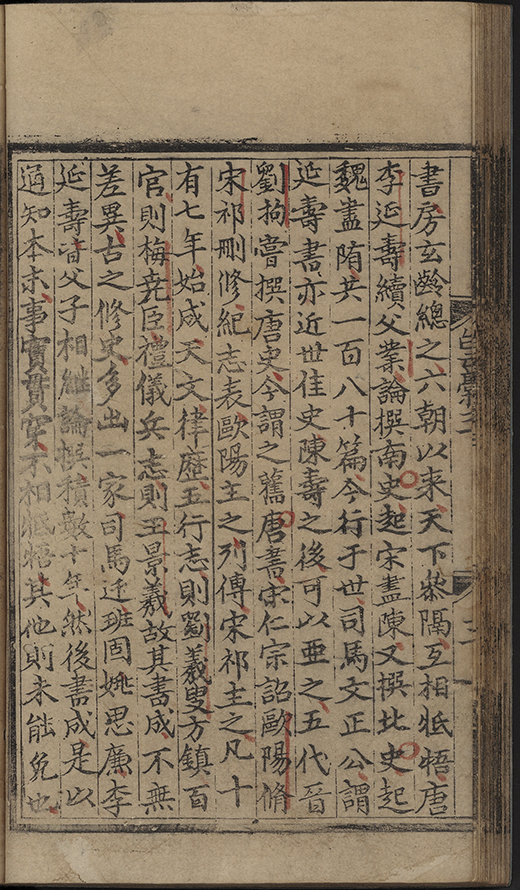 書房玄齡總之六朝以来天下㳟隔互相牴牾唐
李延壽續父業論撰南史起宋盡陳又撰北史起
魏盡隋共一百八十篇今行于世司馬文正公謂
延壽書亦近世佳史陳壽之後可以亞之五代晉
劉拘嘗撰唐史今謂之舊唐書宋仁宗詔歐陽脩
宋祁刪修紀志表歐陽主之列傳宋祁主之凡十
有七年始成天文律歷五行志則劉羲叟方鎮百
官則梅堯臣禮儀兵志則王景羲故其書成不無
差異古之修史多出一家司馬迁班固姚思廉李
延壽皆父子相継論撰積數十年然後書成是以
通知本末事實貫穿不相牴牾其他則未能免也